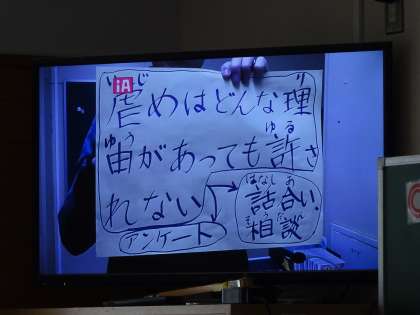 iA
虐めはどんな理
由があっても許さ
れない
いじ
り
ゆう
ゆる
アンケート
はなし あ
話合い
そうだん
相談